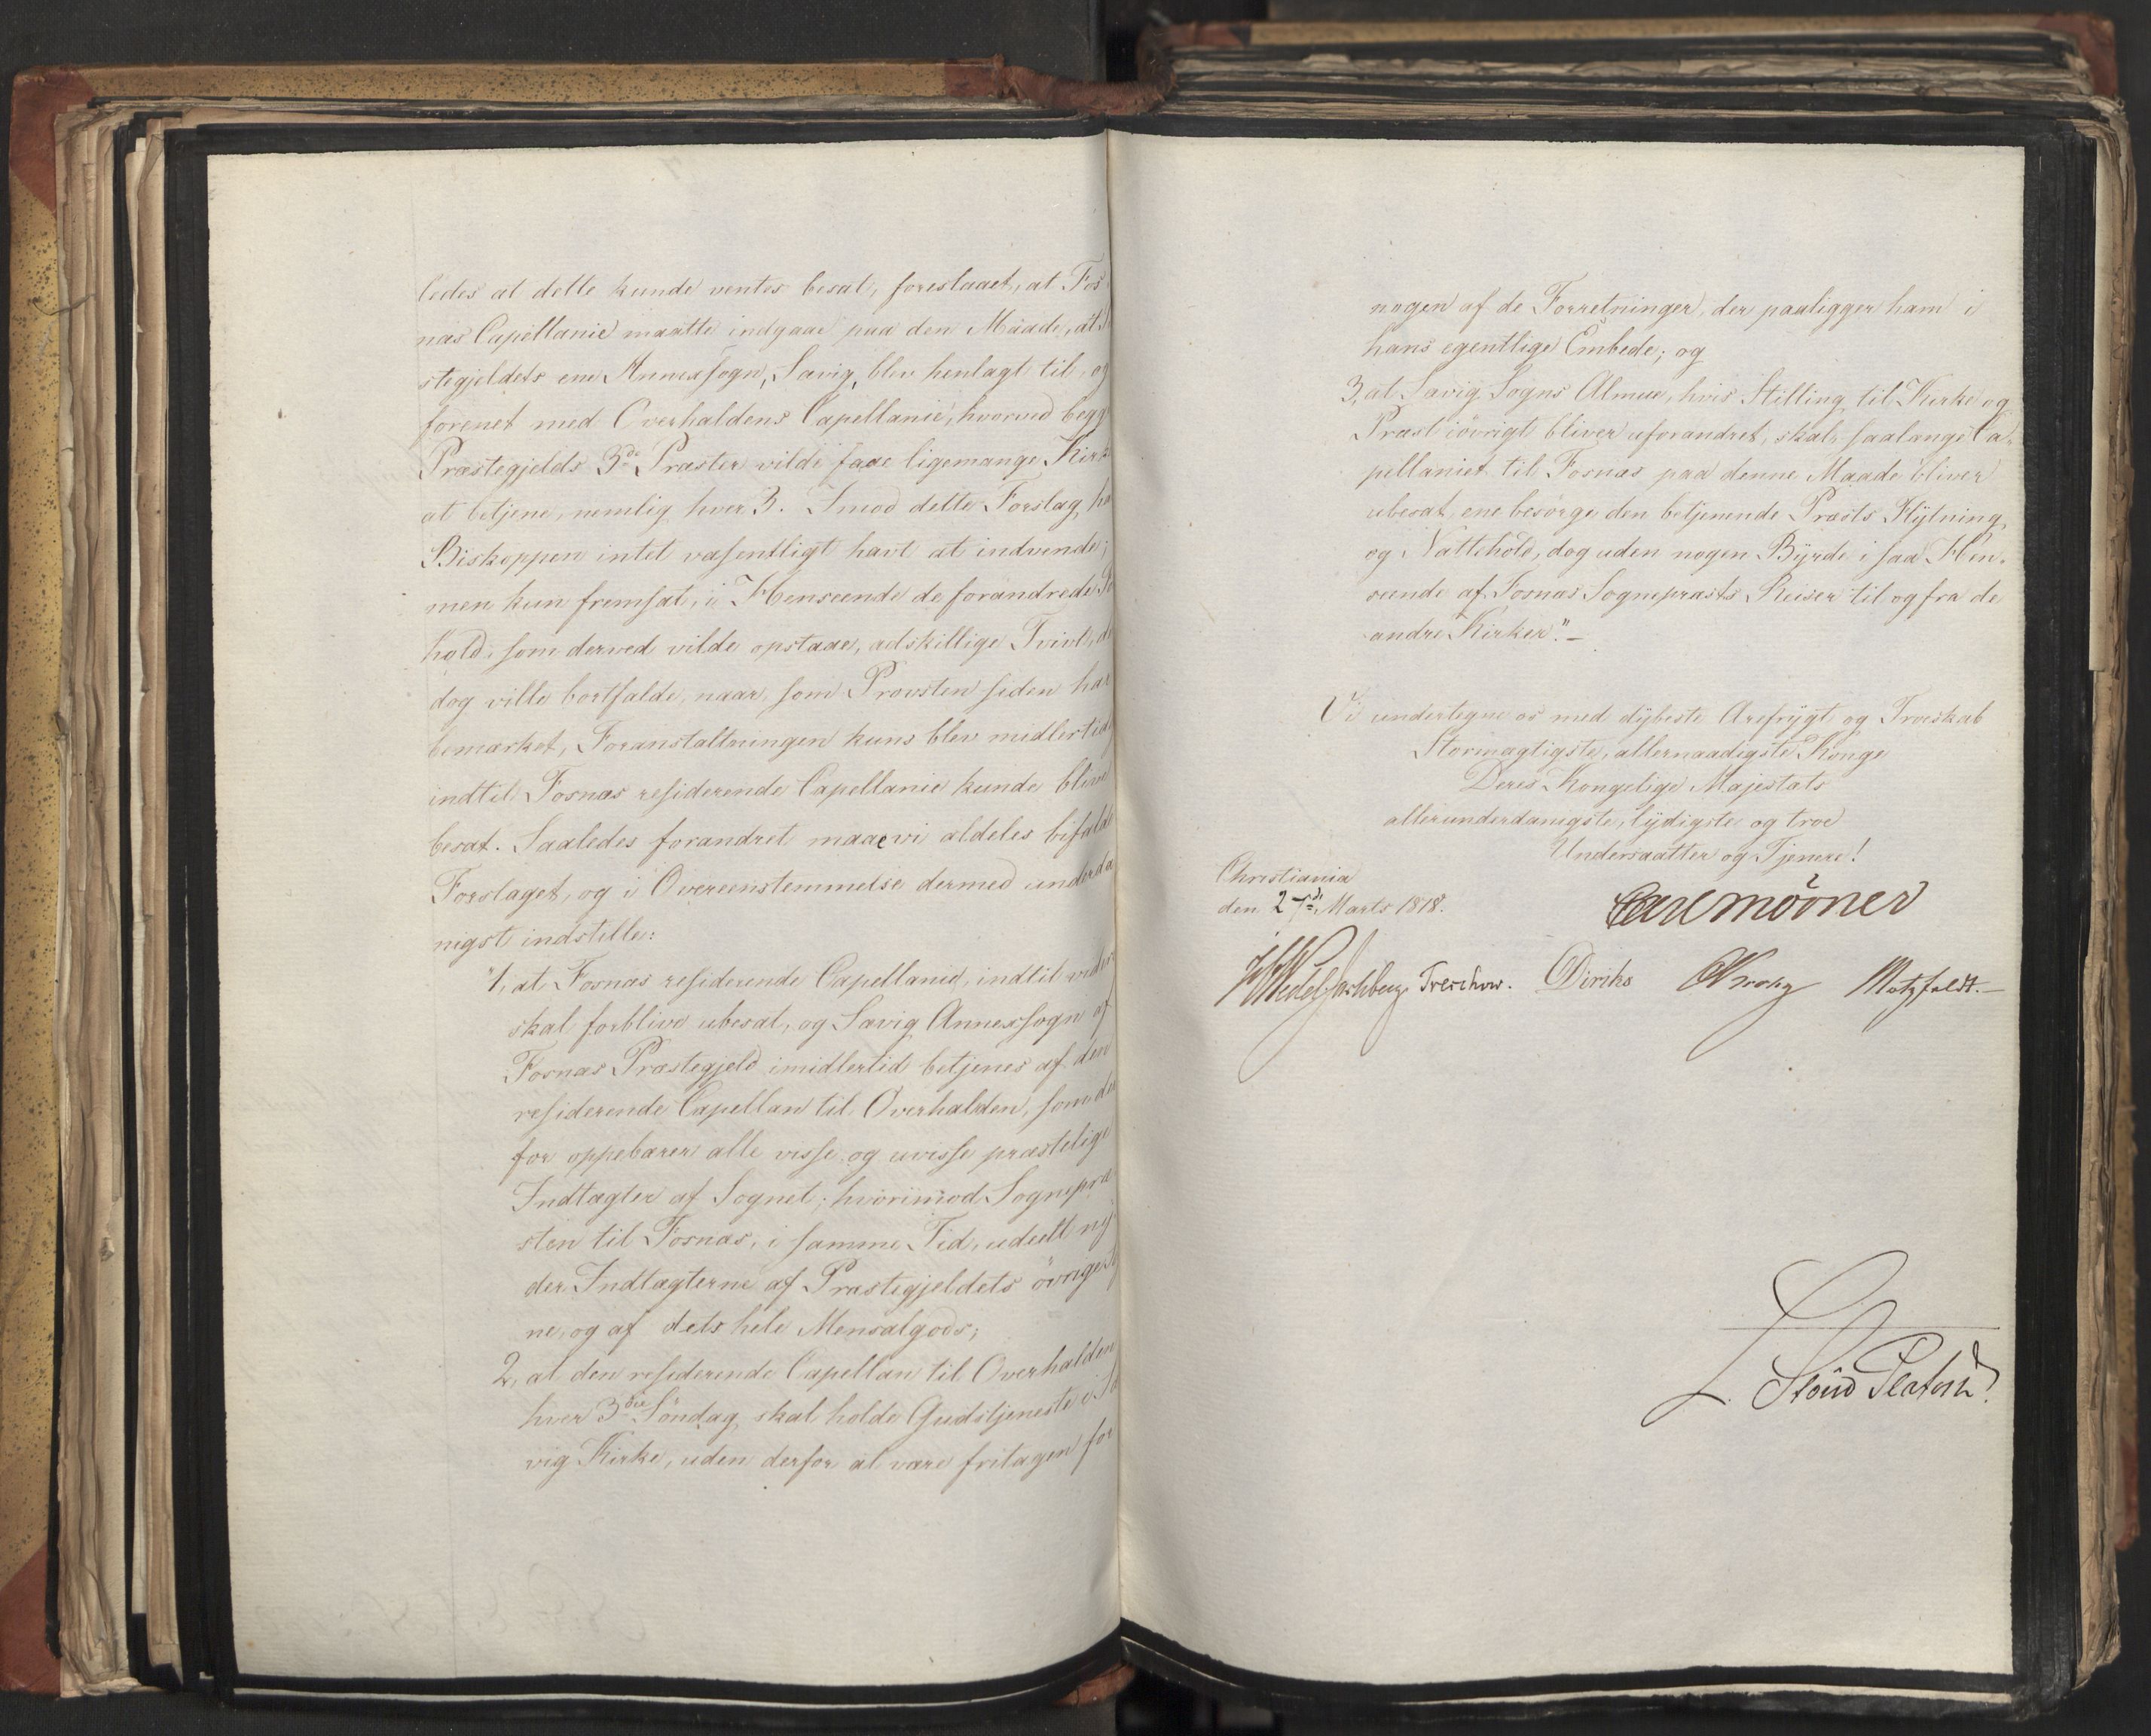 ledes at dette kunde ventes besat, foreslaaet, at Fos
næs Capellanie maatte indgaae paa den Maade, at
stegjeldets ene Annexsogn, Sævig, blev henlagt til, og
forenet med Overhaldens Capellanie, hvorved begg
Præstegjelds 3de Præster vilde faae ligemange Kirk
at betjene, nemlig hver 3. Imod dette Forslag ha
Biskoppen intet væsentligt havt at indvende;
men kun fremsat, i Henseende de forandrede
hold, som derved vilde opstaae, adskillige Tvivl, de
dog ville bortfalde, naar, som Provsten siden har
bemærket, Foranstaltningen kuns blev midlertid
indtil Fosnæs residerende Capellanie kunde blive
besat. Saaledes forandret maae vi aldeles bifalde
Forslaget, og i Overeenstemmelse dermed underda
nigst indstille:
"1, at Fosnæs residerende Capellanie, indtil videre
skal forblive ubesat, og Sævig Annexsogn af
Fosnæs Præstegjeld imidlertid betjenes af den
residerende Capellan til Overhalden, som der
for oppebærer alle visse og uvisse præstelige
Indtægter af Sognet; hvorimod Sognepræ
sten til Fosnæs, i samme Tid, udeelt ny
der Indtægterne af Præstegjeldets övrige
ne, og af dets hele Mensalgods;
2, at den residerende Capellan til Overhalden
hver 3die Söndag skal holde Gudstjeneste i Sæ
vig Kirke, uden derfor at være fritagen for
nogen af de Forretninger, der paaligger ham i
hans egentlige Embede; og
3, at Sævig Sogns Almue, hvis Stilling til Kirke og
Præst iövrigt bliver uforandret, skal, saalænge Ca-
pellaniet til Fosnæs paa denne Maade bliver
ubesat, ene besörge den betjenende Præsts Flytning
og Nattehold, dog uden nogen Byrde i saa Hen-
seende af Fosnæs Sognepræsts Reiser til og fra de
andre Kirker." –
Vi undertegne os med dybeste Ærefrygt og Troeskab
Stormægtigste, allernaadigste Konge
Deres Kongelige Majestæts
allerunderdanigste, lydigste og troe
Undersaatter og Tjenere!
Christiania
den 27de Marts 1818.
Carl Mörner
Wedel Jarlsberg Treschow. Diriks Krohg Motzfeldt. –
Stoud Platou